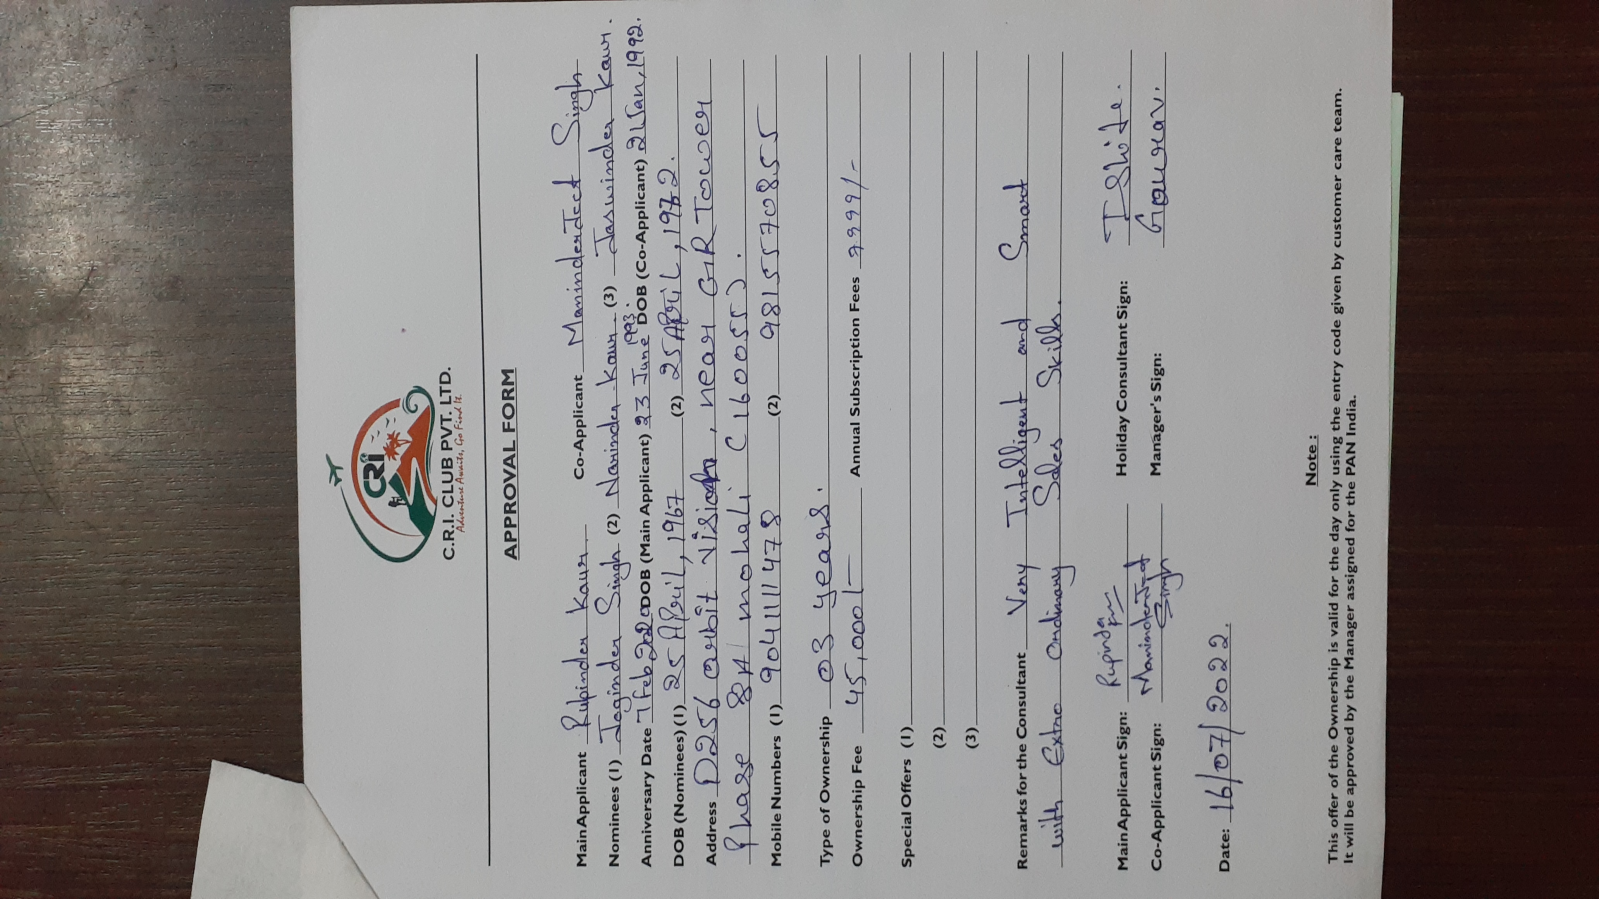 CRI
C.R.I. CLUB PVT. LTD.
Adventure Awaits, Go Find It.
APPROVAL FORM
Main Applicant Rupinder Kaur Co-Applicant ManinderJeet Singh
Nominees (1) Joginder Singh (2) Narinder Kaur (3) Jaswinder Kaur.
Anniversary Date 7 Feb 2020 DOB (Main Applicant) 23 June 1993. DOB (Co-Applicant) 21 Jan, 1992.
DOB (Nominees) (1) 25 April, 1967 (2) 25 April, 1972.
Address D256 orbit vision, near GR Tower
Phase 8A mohali (160055).
Mobile Numbers (1) 9041111478 (2) 9815570855
Type of Ownership 03 years.
Ownership Fee 45,000/- Annual Subscription Fees 7999/-
Special Offers (1)
(2)
(3)
Remarks for the Consultant Very Intelligent and Smart
with Extra ordinary Sales Skills.
Main Applicant Sign: Rupinder Holiday Consultant Sign:
Co-Applicant Sign: ManinderJeet Singh Manager's Sign: Gaurav.
Date: 16/07/2022.
Note :
This offer of the Ownership is valid for the day only using the entry code given by customer care team.
It will be approved by the Manager assigned for the PAN India.